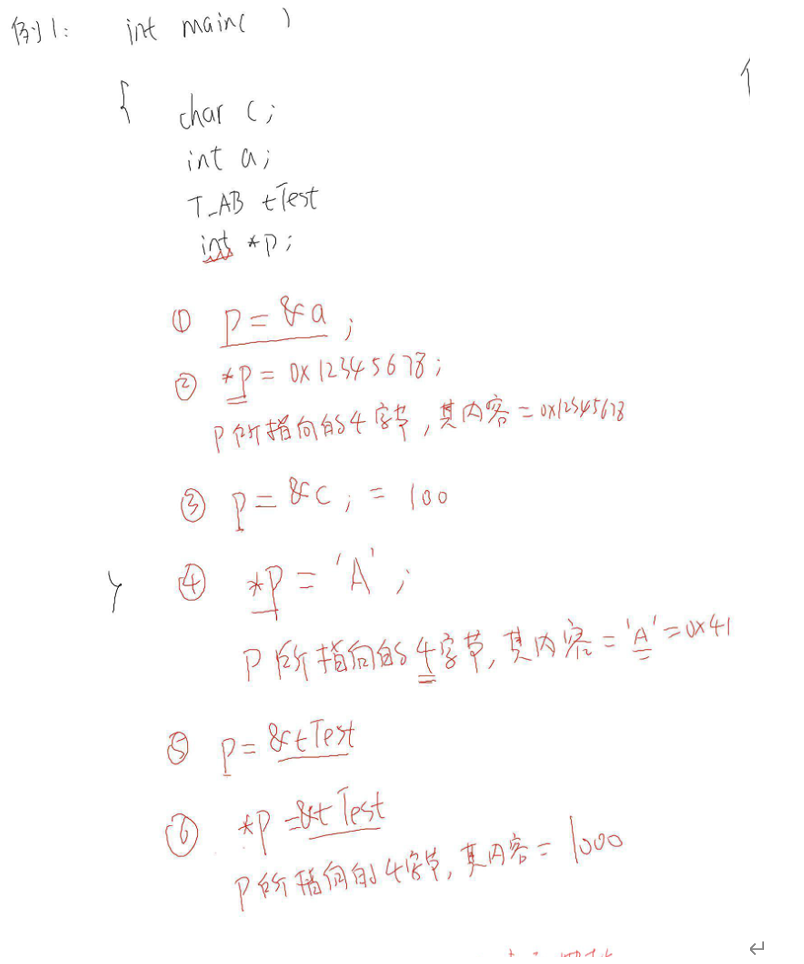 例1: int main( )
{
char c;
int a;
T_AB tTest
int *p;
① p = &a ;
② *p = 0x12345678;
p所指向的4字节,其内容=0x12345678
③ p = &c ; = 100
} ④ *p = 'A' ;
p所指向的4字节,其内容='A'=0x41
⑤ p = &tTest
⑥ *p = &tTest
p所指向的4字节,其内容= 1000